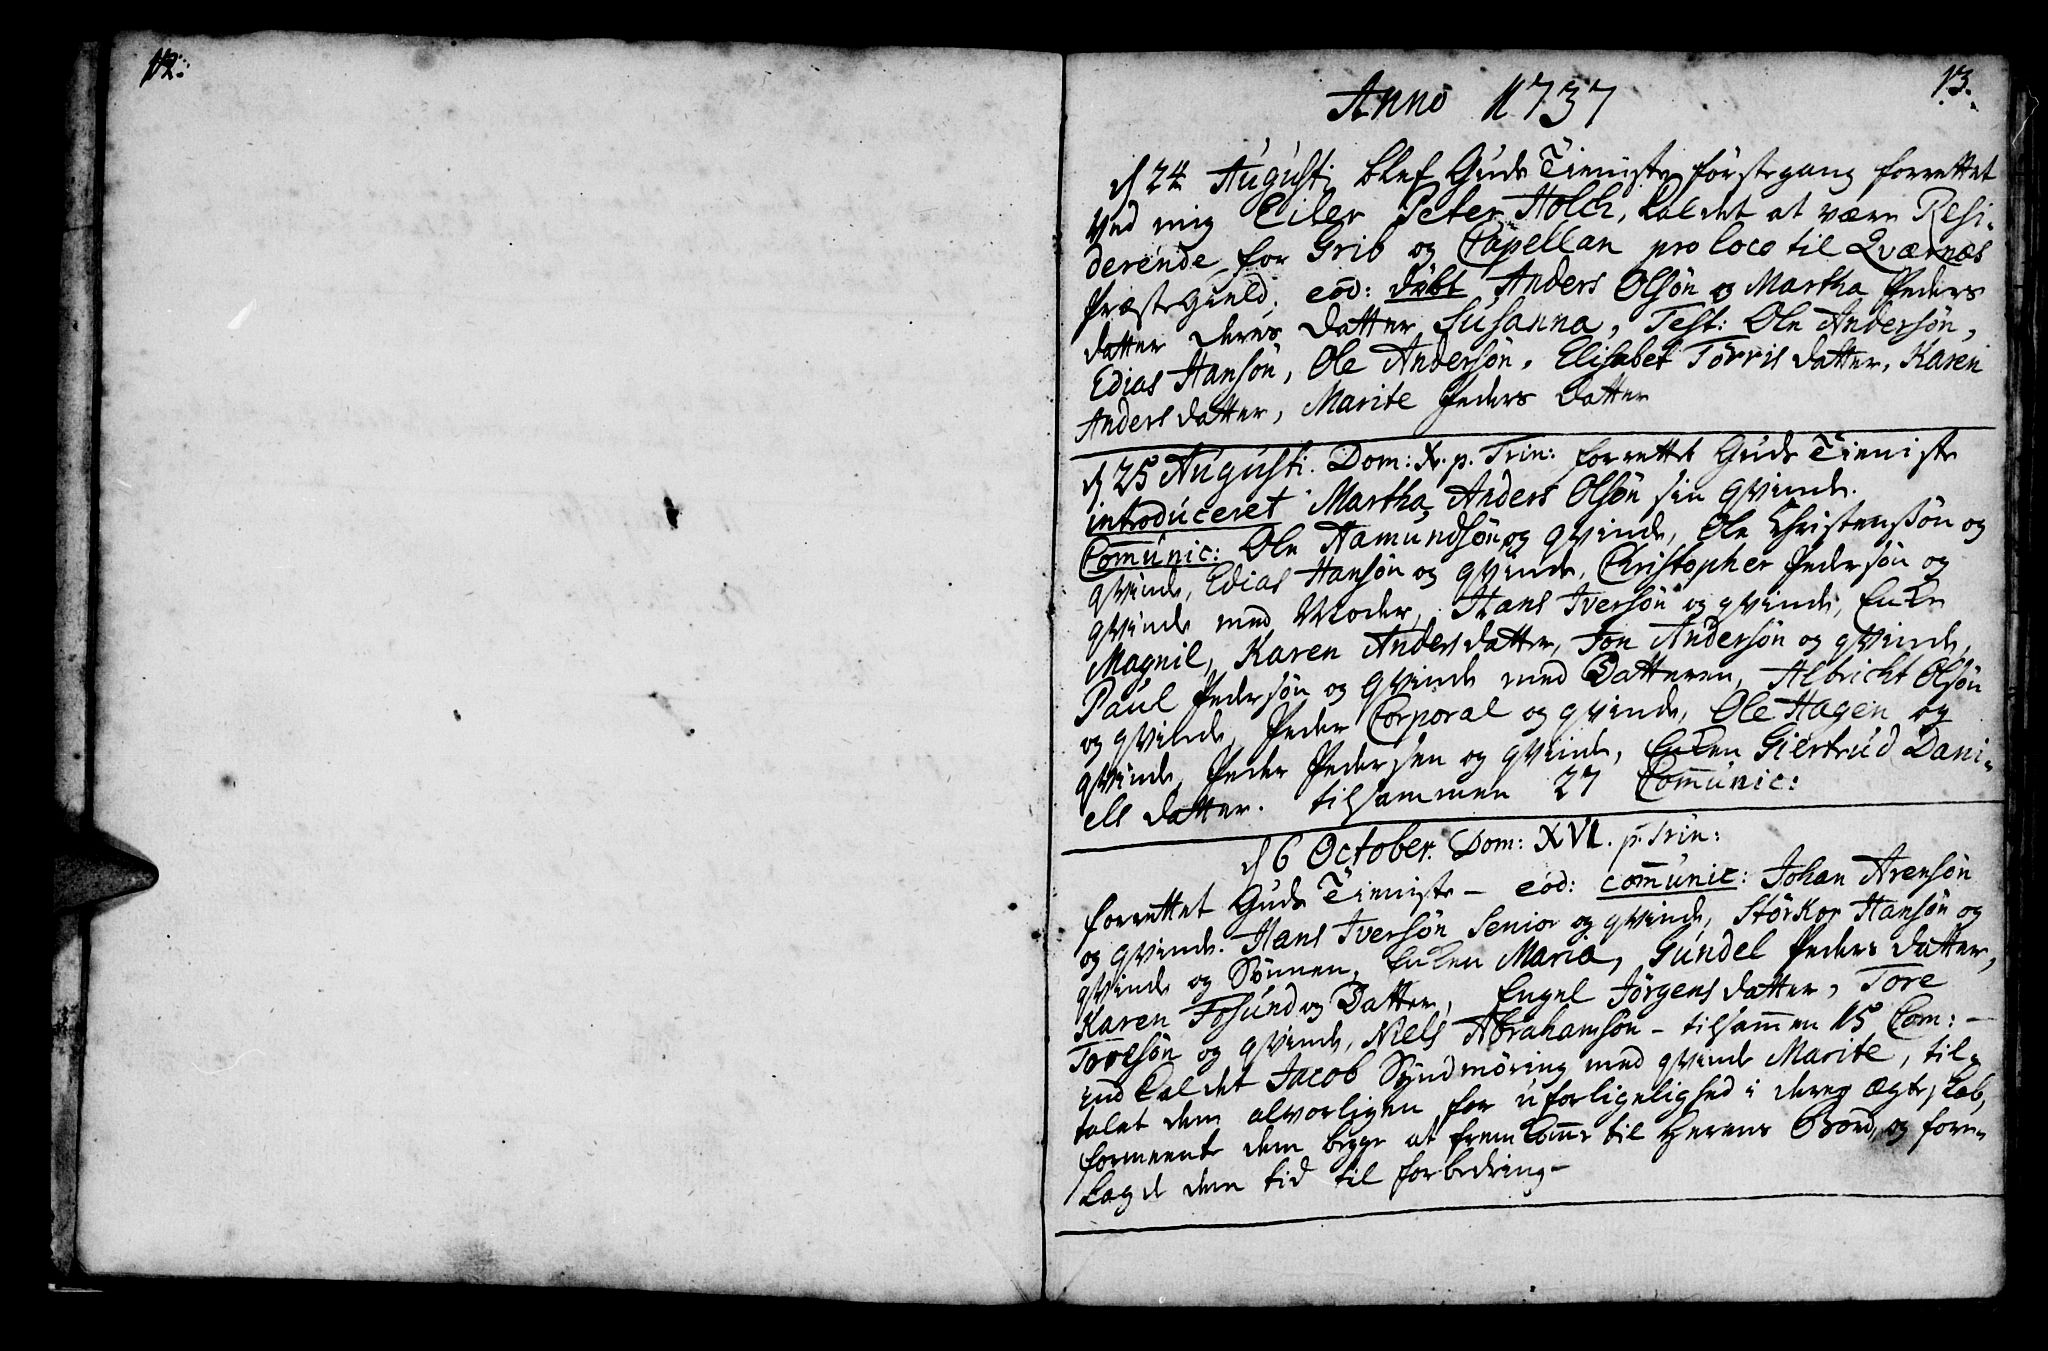 12.
13.
Anno 1737
d 24 Augusti blef Guds Tieniste förstegang forrettet
Ved mig Eiler Peter Holch, kaldet at være Resi-
derende for Grib og Capellan pro loco til Qværnæs
Præstegield. eod: döbt Anders Olsön og Martha Peders
datter deres datter Susanna, Test: Ole Andersön,
Edias Hansön, Ole Andersön, Elisabet Törris datter, Karen
Anders datter, Marite Peders Datter
d 25 Augusti. Dom: X. p. Trin: forrettet Guds Tieniste
introduceret Martha Anders Olsön sin qvinde.
Comunic: Ole Hamundsön og qvinde, Ole Christensön og
qvinde, Edias Hansön og qvinde, Christopher Pedersön og
qvinde med Moder, Hans Iversön og qvinde, Enke
Magnil, Karen Anders datter, Jon Andersön og qvinde,
Paul Pedersön og qvinde med Datteren, Albricht Olsön
og qvinde, Peder Corporal og qvinde, Ole Hagen og
qvinde, Peder Pedersen og qvinde, Enken Giertrud Dani-
els datter. tilsammen 27 Comunic:
d 6 October. Dom: XVI. p. Trin:
forrettet Guds Tieniste - eod: comunic: Johan Arensön
og qvinde. Hans Iversön Senior og qvinde, Störkor Hansön og
qvinde og Sönnen, Enken Maria, Gundel Peders datter,
Karen Fosund og Datter, Engel Jörgens datter, Tore
Toresön og qvinde, Niels Abrahamsön - tilsamen 15 Com: -
ind kaldet Jacob Syndmöring med qvinde Marite, til-
talet dem alvorligen for uforligelighed i deres Ægteskab,
formeente dem begge at fremkome til Herens Bord, og fore-
lagde dem tid til forbedring -